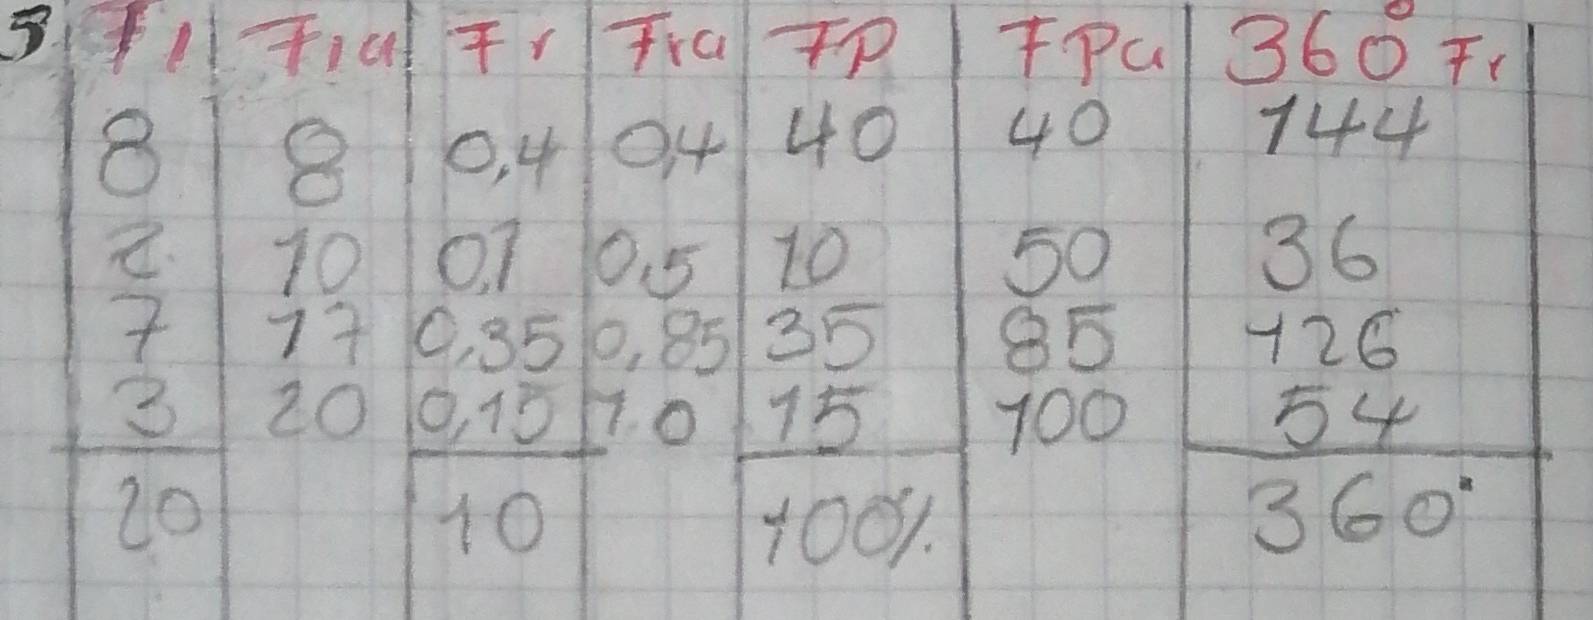 3 Fi Fia Fr Fra FP FPa 360° Fr
8 8 0,4 0,4 40 40 144
2 10 0,1 0,5 10 50 36
7 17 0,35 0,85 35 85 126
3 20 0,15 1.0 15 100 54
20 10 100% 360°